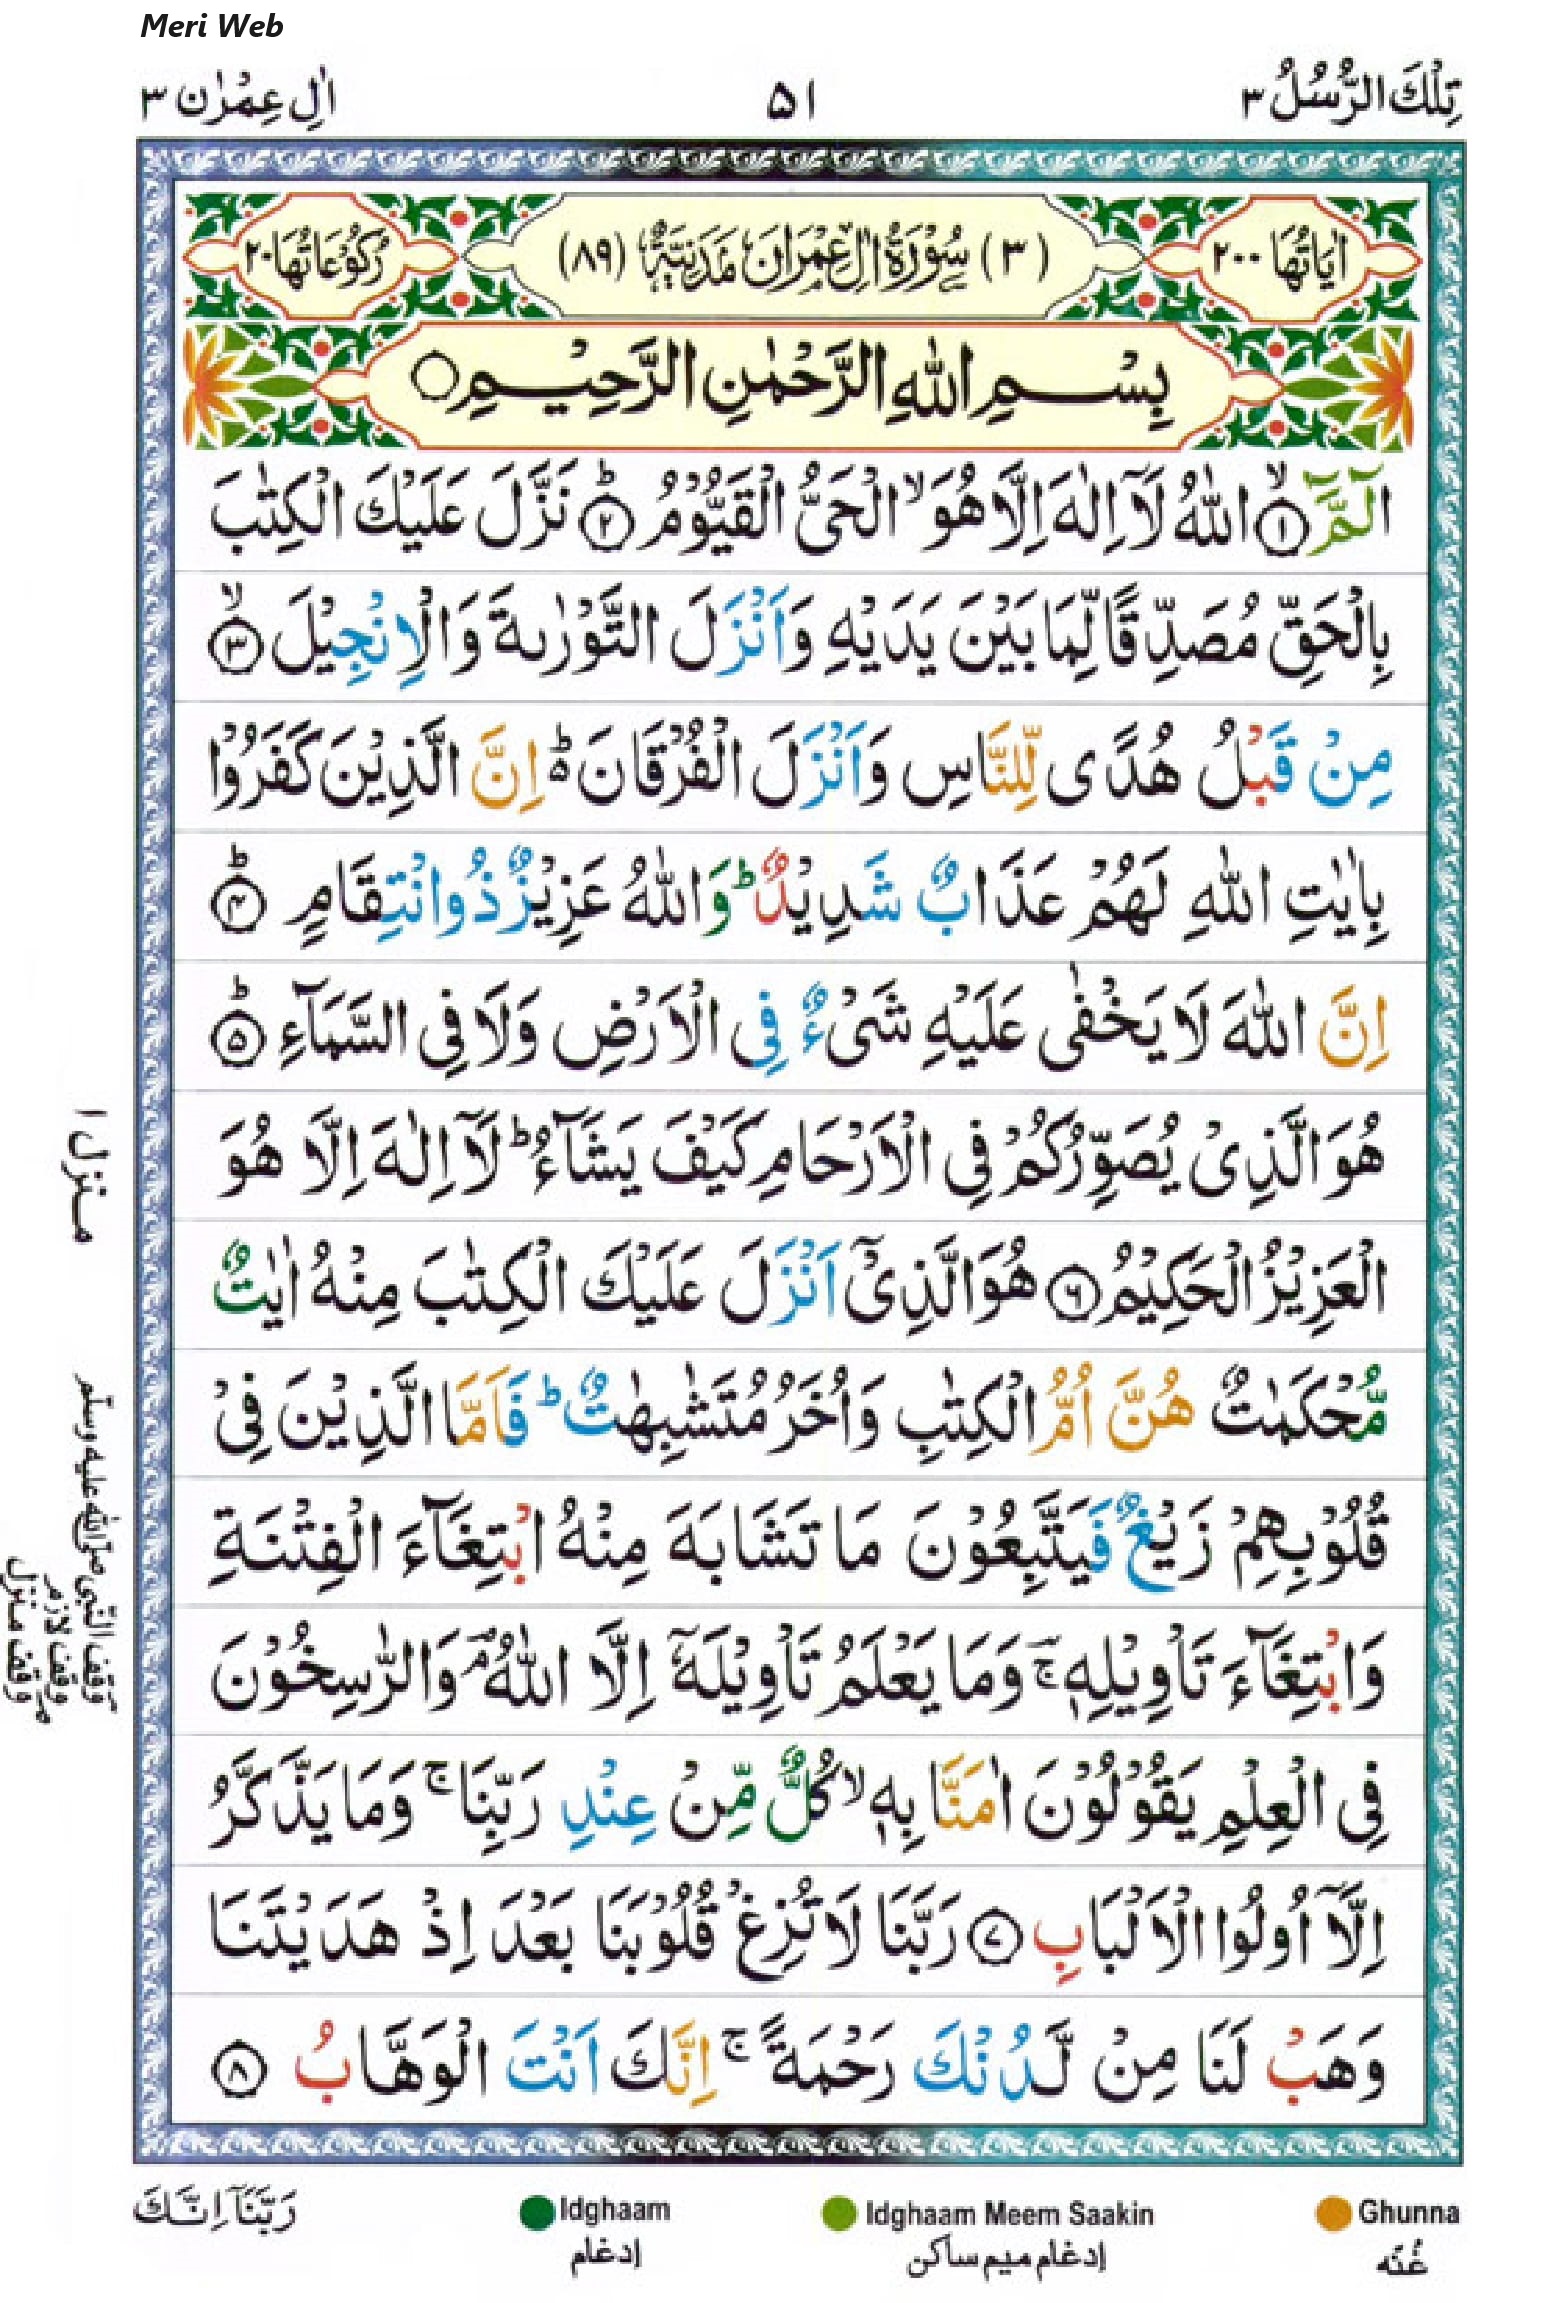 Meri Web
تِلْكَ الرُّسُلُ ٣
۵۱
اٰلِ عِمْرٰن ٣
اٰيَاتُهَا ٢٠٠
(٣) سُوْرَةُ اٰلِ عِمْرَانَ مَدَنِيَّةٌ (٨٩)
رُكُوْعَاتُهَا ٢٠
بِسْمِ اللّٰهِ الرَّحْمٰنِ الرَّحِيْمِ
الٓمّٓ ۙ﴿۱﴾ اللّٰهُ لَاۤ اِلٰهَ اِلَّا هُوَ ۙ الْحَىُّ الْقَيُّوْمُ ؕ﴿۲﴾ نَزَّلَ عَلَيْكَ الْكِتٰبَ
بِالْحَقِّ مُصَدِّقًا لِّمَا بَيْنَ يَدَيْهِ وَاَنْزَلَ التَّوْرٰىةَ وَالْاِنْجِيْلَ ۙ﴿۳﴾
مِنْ قَبْلُ هُدًى لِّلنَّاسِ وَاَنْزَلَ الْفُرْقَانَ ؕ۬ اِنَّ الَّذِيْنَ كَفَرُوْا
بِاٰيٰتِ اللّٰهِ لَهُمْ عَذَابٌ شَدِيْدٌ ؕ وَاللّٰهُ عَزِيْزٌ ذُوانْتِقَامٍ ؕ﴿۴﴾
اِنَّ اللّٰهَ لَا يَخْفٰى عَلَيْهِ شَىْءٌ فِى الْاَرْضِ وَلَا فِى السَّمَآءِ ؕ﴿۵﴾
هُوَ الَّذِىْ يُصَوِّرُكُمْ فِى الْاَرْحَامِ كَيْفَ يَشَآءُ ؕ لَاۤ اِلٰهَ اِلَّا هُوَ
الْعَزِيْزُ الْحَكِيْمُ ﴿۶﴾ هُوَ الَّذِىْۤ اَنْزَلَ عَلَيْكَ الْكِتٰبَ مِنْهُ اٰيٰتٌ
مُّحْكَمٰتٌ هُنَّ اُمُّ الْكِتٰبِ وَاُخَرُ مُتَشٰبِهٰتٌ ؕ فَاَمَّا الَّذِيْنَ فِىْ
قُلُوْبِهِمْ زَيْغٌ فَيَتَّبِعُوْنَ مَا تَشَابَهَ مِنْهُ ابْتِغَآءَ الْفِتْنَةِ
وَابْتِغَآءَ تَاْوِيْلِهٖ ۚ وَمَا يَعْلَمُ تَاْوِيْلَهٗۤ اِلَّا اللّٰهُ ۘ وَالرّٰسِخُوْنَ
فِى الْعِلْمِ يَقُوْلُوْنَ اٰمَنَّا بِهٖ ۙ كُلٌّ مِّنْ عِنْدِ رَبِّنَا ۚ وَمَا يَذَّكَّرُ
اِلَّاۤ اُولُوا الْاَلْبَابِ ﴿۷﴾ رَبَّنَا لَا تُزِغْ قُلُوْبَنَا بَعْدَ اِذْ هَدَيْتَنَا
وَهَبْ لَنَا مِنْ لَّدُنْكَ رَحْمَةً ۚ اِنَّكَ اَنْتَ الْوَهَّابُ ﴿۸﴾
منزل ۱
وقف النبي صلى الله عليه وسلم
وقف لازم
وقف منزل
رَبَّنَاۤ اِنَّكَ
Idghaam
إدغام
Idghaam Meem Saakin
إدغام ميم ساكن
Ghunna
غُنّه